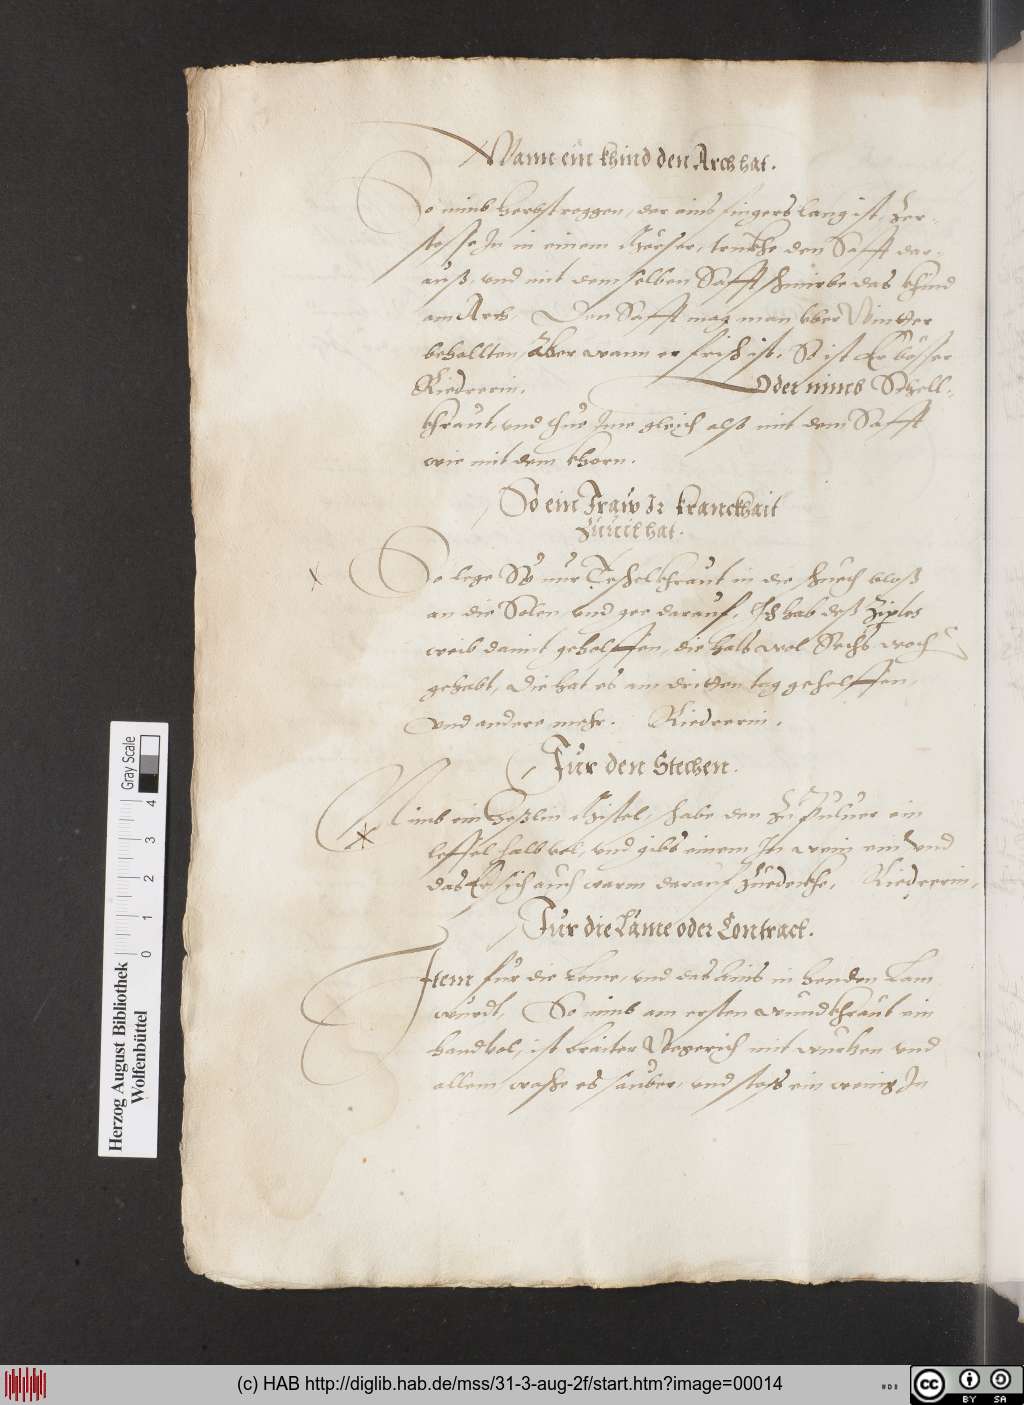 Wann ein khind den Arch hat.
So nimb herbstroggen, der eins fingers lang ist, Zer-
stosse In in einem Merser, trukhe den Safft dar-
auß, und mit demselben Safft schmirbe das khind
am Arch. Den Safft mag man vber Winter
behallten, Aber wann er frisch ist, So ist Er besser
Riedrerin. Oder nimb Schell-
khraut, und thue Ime gleich alß mit dem Safft
wie mit dem khorn.
So ein Fraw Ir kranckhait
Zuuil hat.
So lege Sy nur Teschelkhraut in die schuech bloß
an die Solen und gee darauf, Ich hab deß Ziplos
weib damit geholffen, die hats wol Sechs woch
gehabt, Die hat es am dritten tag geholffen,
Vnd andere mehr. Riedrerin.
Für den Stechen.
Nimb ein Haßlin Mistel, schabe den Zu Puluer ein
leffel halb vol, vnd gibs einem In wein ein vnd
das Er sich auch warm darauf Zuedeckhe, Riedrerin,
Für die Läme oder Contract.
Item für die Leme, und das eins in henden Lam
wurdt, So nimb am ersten wundkhraut ein
handvol, ist braiter Wegerich mit wurtzen vnd
allem, wasche es sauber, und stoss ein wenig In
Herzog August Bibliothek
Wolfenbüttel
Gray Scale
0 1 2 3 4
(c) HAB http://diglib.hab.de/mss/31-3-aug-2f/start.htm?image=00014
cc BY SA